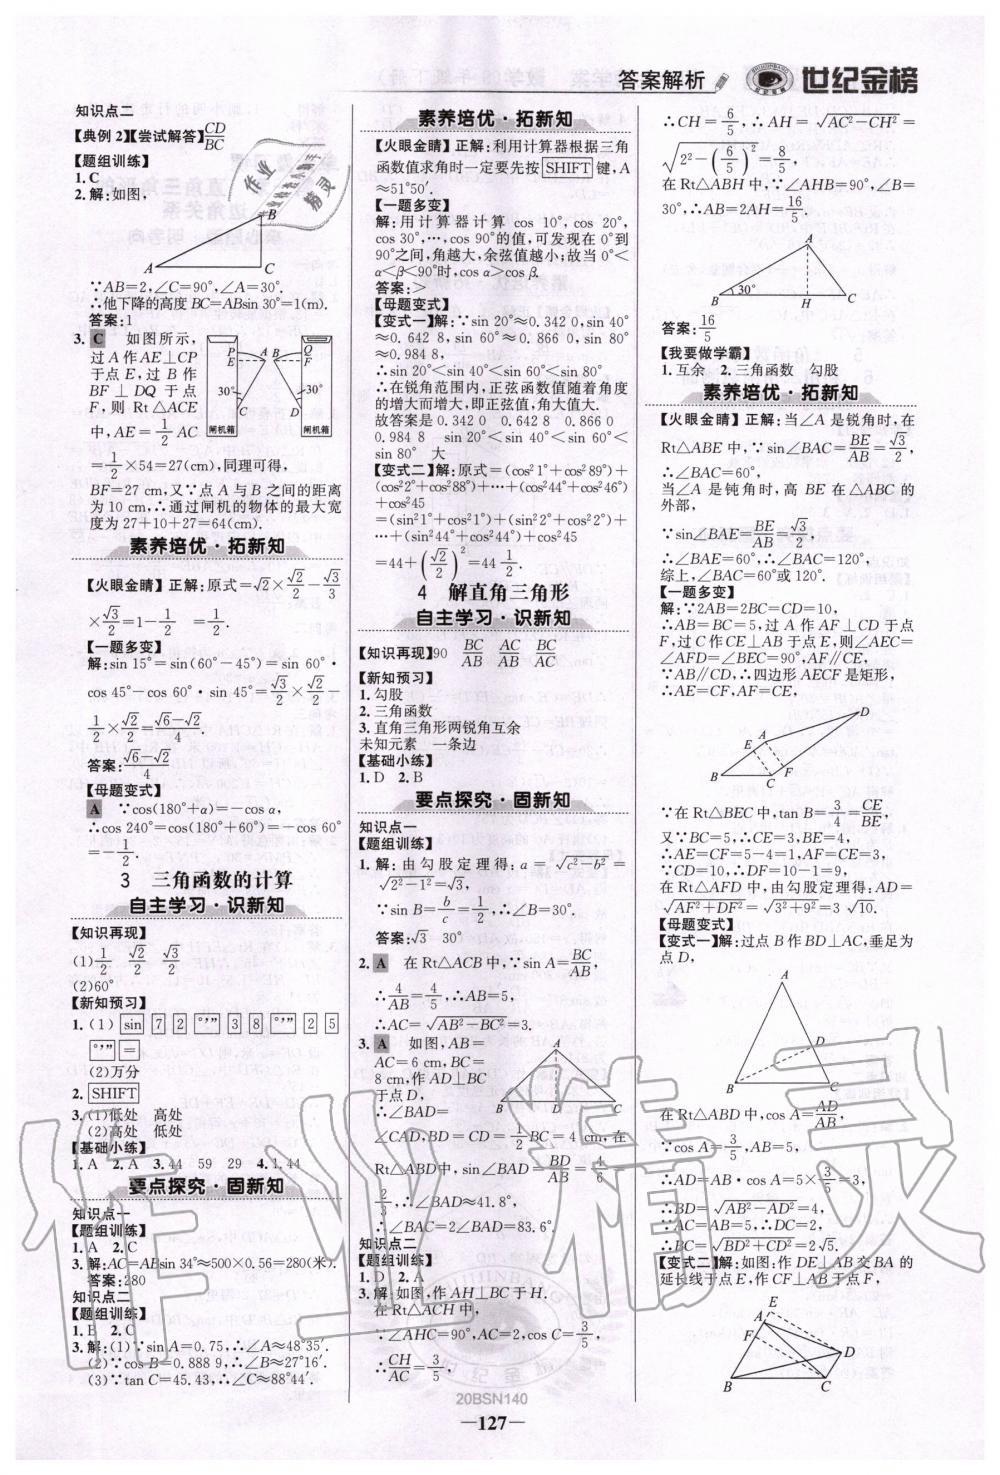 答案解析
世纪金榜
知识点二
【典例2】【尝试解答】CD/BC
【题组训练】
1. C
2. 解:如图,
B
A C
∵AB=2,∠C=90°,∠A=30°.
∴他下降的高度 BC=ABsin 30°=1(m).
答案:1
3. C 如图所示,
过 A 作 AE⊥CP
于点 E,过 B 作
BF⊥DQ 于点
F,则 Rt△ACE
中,AE=1/2 AC
P Q
E A B F
30° 30°
C D
闸机箱 闸机箱
=1/2×54=27(cm),同理可得,
BF=27 cm,又∵点 A 与 B 之间的距离
为 10 cm,∴通过闸机的物体的最大宽
度为 27+10+27=64(cm).
素养培优·拓新知
【火眼金睛】正解:原式=√2×√2/2-√3/3
×√3/2=1-1/2=1/2.
【一题多变】
解:sin 15°=sin(60°-45°)=sin 60°·
cos 45°-cos 60°·sin 45°=√3/2×√2/2-
1/2×√2/2=(√6-√2)/4.
答案:(√6-√2)/4
【母题变式】
A ∵cos(180°+α)=-cos α,
∴cos 240°=cos(180°+60°)=-cos 60°
=-1/2.
3 三角函数的计算
自主学习·识新知
【知识再现】
(1)1/2 √2/2 √3/2
(2)60°
【新知预习】
1. (1) sin 7 2 °′″ 3 8 °′″ 2 5
°′″ =
(2)万分
2. SHIFT
3. (1)低处 高处
(2)高处 低处
【基础小练】
1. A 2. A 3. 44 59 29 4. 1.44
要点探究·固新知
知识点一
【题组训练】
1. A 2. C
3. 解:AC=ABsin 34°≈500×0.56=280(米).
答案:280
知识点二
【题组训练】
1. B 2. C
3. 解:(1)∵sin A=0.75,∴∠A≈48°35′.
(2)∵cos B=0.888 9,∴∠B≈27°16′.
(3)∵tan C=45.43,∴∠C≈88°44′.
素养培优·拓新知
【火眼金睛】正解:利用计算器根据三角
函数值求角时一定要先按 SHIFT 键,A
≈51°50′.
【一题多变】
解:用计算器计算 cos 10°,cos 20°,
cos 30°,…,cos 90°的值,可发现在0°到
90°之间,角越大,余弦值越小;故当 0°<
α<β<90°时,cos α>cos β.
答案:>
【母题变式】
【变式一】解:∵sin 20°≈0.342 0,sin 40°
≈0.642 8,sin 60°≈0.866 0,sin 80°
≈0.984 8,
∴sin 20°<sin 40°<sin 60°<sin 80°
∴在锐角范围内,正弦函数值随着角度
的增大而增大,即正弦值,角大值大.
故答案是 0.342 0 0.642 8 0.866 0
0.984 8 sin 20°<sin 40°<sin 60°<
sin 80° 大
【变式二】解:原式=(cos²1°+cos²89°)+
(cos²2°+cos²88°)+…+(cos²44°+cos²46°)
+cos²45
=(sin²1°+cos²1°)+(sin²2°+cos²2°)+
…+(sin²44°+cos²44°)+cos²45
=44+(√2/2)²=44 1/2.
4 解直角三角形
自主学习·识新知
【知识再现】90 BC/AB AC/AB BC/AC
【新知预习】
1. 勾股
2. 三角函数
3. 直角三角形两锐角互余
未知元素 一条边
【基础小练】
1. D 2. B
要点探究·固新知
知识点一
【题组训练】
1. 解:由勾股定理得:a=√(c²-b²)=
√(2²-1²)=√3,
∵sin B=b/c=1/2,∴∠B=30°.
答案:√3 30°
2. A 在 Rt△ACB 中,∵sin A=BC/AB,
∴4/AB=4/5,∴AB=5,
∴AC=√(AB²-BC²)=3.
3. A 如图,AB=
AC=6 cm,BC=
8 cm,作 AD⊥BC
于点 D,
∴∠BAD=
A
B D C
∠CAD,BD=CD=1/2 BC=4 cm,在
Rt△ABD 中,sin∠BAD=BD/AB=4/6=
2/3,∴∠BAD≈41.8°,
∴∠BAC=2∠BAD≈83.6°.
知识点二
【题组训练】
1. D 2. A
3. 解:如图,作 AH⊥BC 于 H.
在 Rt△ACH 中,
∵∠AHC=90°,AC=2,cos C=3/5,
∴CH/AC=3/5,
∴CH=6/5,∴AH=√(AC²-CH²)=
√(2²-(6/5)²)=8/5,
在 Rt△ABH 中,∵∠AHB=90°,∠B=
30°,∴AB=2AH=16/5.
A
B 30° H C
答案:16/5
【我要做学霸】
1. 互余 2. 三角函数 勾股
素养培优·拓新知
【火眼金睛】正解:当∠A 是锐角时,在
Rt△ABE 中,∵sin∠BAC=BE/AB=√3/2,
∴∠BAC=60°,
当∠A 是钝角时,高 BE 在△ABC 的
外部,
∵sin∠BAE=BE/AB=√3/2,
∴∠BAE=60°,∴∠BAC=120°.
综上,∠BAC=60°或 120°.
【一题多变】
解:∵2AB=2BC=CD=10,
∴AB=BC=5,过 A 作 AF⊥CD 于点
F,过 C 作 CE⊥AB 于点 E,则∠AEC=
∠AFD=∠BEC=90°,AF∥CE,
∵AB∥CD,∴四边形 AECF 是矩形,
∴AE=CF,AF=CE,
A D
E
B C F
∵在 Rt△BEC 中,tan B=3/4=CE/BE,
又∵BC=5,∴CE=3,BE=4,
∴AE=CF=5-4=1,AF=CE=3,
∵CD=10,∴DF=10-1=9,
在 Rt△AFD 中,由勾股定理得:AD=
√(AF²+DF²)=√(3²+9²)=3√10.
【母题变式】
【变式一】解:过点 B 作 BD⊥AC,垂足为
点 D,
A
D
B C
在 Rt△ABD 中,cos A=AD/AB,
∵cos A=3/5,AB=5,
∴AD=AB·cos A=5×3/5=3,
∴BD=√(AB²-AD²)=4,
∵AC=AB=5,∴DC=2,
∴BC=√(BD²+CD²)=2√5.
【变式二】解:如图,作 DE⊥AB 交 BA 的
延长线于点 E,作 CF⊥AB 于点 F,
E
A
F D
B C
20BSN140
—127—